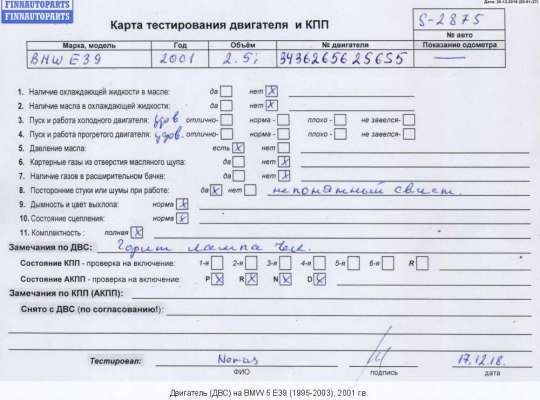 FINNAUTOPARTS
FINNAUTOPARTS
Дата: 20.12.2018 (20:01:37)
Карта тестирования двигателя и КПП
S-2875
№ авто
Марка, модель Год Объём № двигатели Показание одометра
BMW E39 2001 2.5i 34362656256S5 —
1. Наличие охлаждающей жидкости в масле: да нет X
2. Наличие масла в охлаждающей жидкости: да нет X
3. Пуск и работа холодного двигателя: удов отлично- норма - плохо - не завелся-
4. Пуск и работа прогретого двигателя: удов. отлично- норма - плохо - не завелся-
5. Давление масла: есть X нет
6. Картерные газы из отверстия масляного щупа: да нет X
7. Наличие газов в расширительном бачке: да нет X
8. Посторонние стуки или шумы при работе: да X нет непонятный свист.
9. Дымность и цвет выхлопа: норма X
10. Состояние сцепления: норма X
11. Комплектность : полная X
Замечания по ДВС: Горит лампа чек.
Состояние КПП - проверка на включение: 1-я 2-я 3-я 4-я 5-я 6-я R
Состояние АКПП - проверка на включение: P X R X N X D X
Замечания по КПП (АКПП):
Снято с ДВС (по согласованию!):
Тестировал: 17.12.18.
ФИО подпись дата
Двигатель (ДВС) на BMW 5 E39 (1995-2003), 2001 г.в.